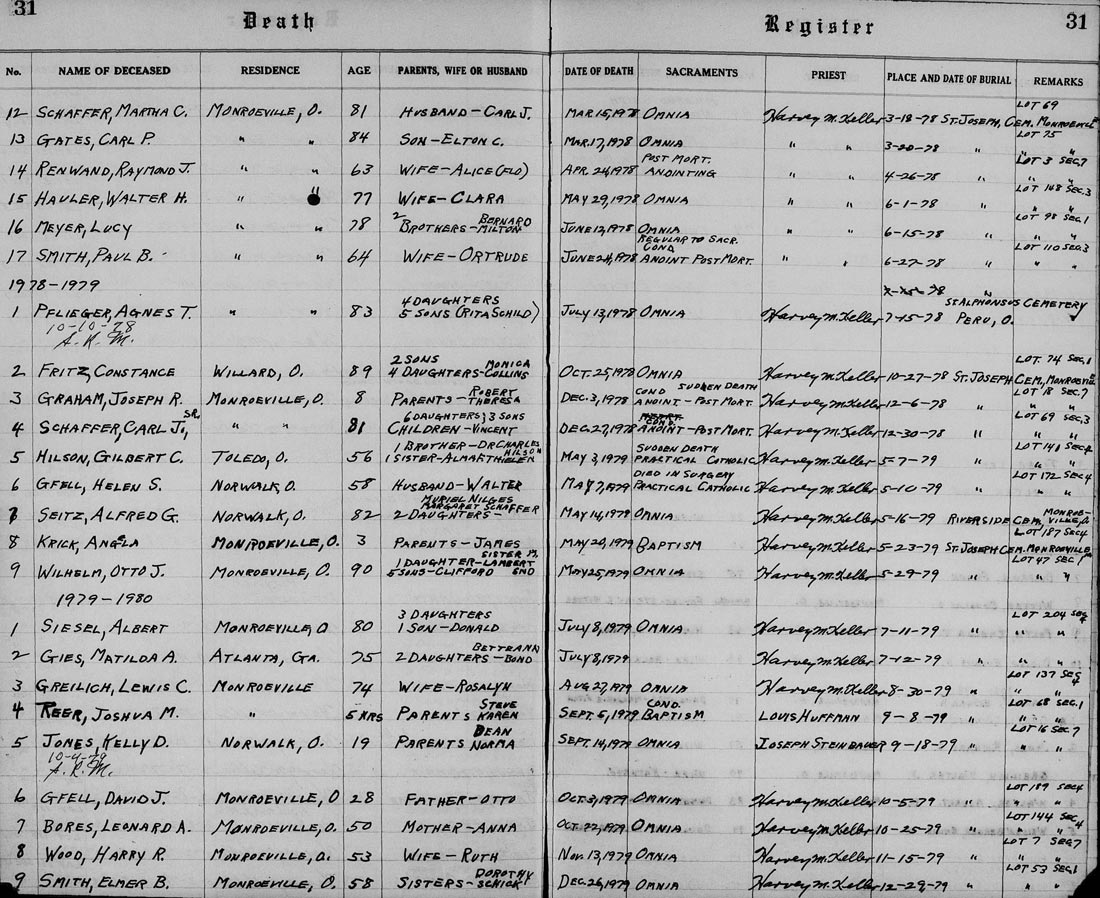 31 Death Register 31
No. NAME OF DECEASED RESIDENCE AGE PARENTS, WIFE OR HUSBAND DATE OF DEATH SACRAMENTS PRIEST PLACE AND DATE OF BURIAL REMARKS
LOT 69
12 SCHAFFER, MARTHA C. MONROEVILLE, O. 81 HUSBAND-CARL J. MAR.15,1978 OMNIA Harvey M. Keller 3-18-78 ST. JOSEPH, CEM. MONROEVILLE
LOT 75
13 GATES, CARL P. " " 84 SON-ELTON C. MAR.17,1978 OMNIA " " 3-20-78 " " "
POST MORT. LOT 3 SEC.7
14 RENWAND, RAYMOND J. " " 63 WIFE-ALICE (FLO) APR.24,1978 ANOINTING " " 4-26-78 " " "
LOT 148 SEC.3
15 HAULER, WALTER H. " " 77 WIFE-CLARA MAY 29,1978 OMNIA " " 6-1-78 " " "
2 BERNARD LOT 98 SEC.1
16 MEYER, LUCY " " 78 BROTHERS-MILTON JUNE 12,1978 OMNIA " " 6-15-78 " " "
REGULAR TO SACR. COND LOT 110 SEC.3
17 SMITH, PAUL B. " " 64 WIFE-ORTRUDE JUNE 24,1978 ANOINT POST MORT. " " 6-27-78 " " "
1978-1979
4 DAUGHTERS ST ALPHONSUS CEMETERY
1 PFLIEGER, AGNES T. " " 83 5 SONS (RITA SCHILD) JULY 13,1978 OMNIA Harvey M. Keller 7-15-78 PERU, O.
10-10-78
A. R. M.
2 SONS MONICA LOT. 74 SEC.1
2 FRITZ, CONSTANCE WILLARD, O. 89 4 DAUGHTERS-COLLINS OCT.25,1978 OMNIA Harvey M. Keller 10-27-78 ST. JOSEPH CEM, MONROEVILLE
ROBERT COND SUDDEN DEATH LOT 18 SEC.7
3 GRAHAM, JOSEPH R. MONROEVILLE, O. 8 PARENTS-THERESA DEC.3,1978 ANOINT-POST MORT. Harvey M. Keller 12-6-78 " " "
SR. 6 DAUGHTERS; 3 SONS COND. LOT 69 SEC.3
4 SCHAFFER, CARL J., " " 81 CHILDREN-VINCENT DEC.27,1978 ANOINT-POST MORT. Harvey M. Keller 12-30-78 " " "
1 BROTHER-DR CHARLES HILSON SUDDEN DEATH LOT 141 SEC.4
5 HILSON, GILBERT C. TOLEDO, O. 56 1 SISTER-ALMA FTHIELEN MAY 3,1979 PRACTICAL CATHOLIC Harvey M. Keller 5-7-79 " " "
DIED IN SURGERY LOT 172 SEC.4
6 GFELL, HELEN S. NORWALK, O. 58 HUSBAND-WALTER MAY 7,1979 PRACTICAL CATHOLIC Harvey M. Keller 5-10-79 " " "
MURIEL NILGES MARGARET SCHAFFER MONROEVILLE, O.
7 SEITZ, ALFRED G. NORWALK, O. 82 2 DAUGHTERS- MAY 14,1979 OMNIA Harvey M. Keller 5-16-79 RIVERSIDE CEM,
LOT 187 SEC 4
8 KRICK, ANGELA MONROEVILLE, O. 3 PARENTS-JAMES MAY 20,1979 BAPTISM Harvey M. Keller 5-23-79 ST. JOSEPH CEM. MONROEVILLE
1 DAUGHTER-SISTER M. LAMBERT SND LOT 47 SEC.1
9 WILHELM, OTTO J. MONROEVILLE, O. 90 5 SONS-CLIFFORD MAY 25,1979 OMNIA Harvey M. Keller 5-29-79 " " "
1979-1980
3 DAUGHTERS LOT 204 SEC
1 SIESEL, ALBERT MONROEVILLE, O 80 1 SON-DONALD JULY 8,1979 OMNIA Harvey M. Keller 7-11-79 " " "
BETTRANN
2 GIES, MATILDA A. ATLANTA, GA. 75 2 DAUGHTERS-BOND JULY 8,1979 Harvey M. Keller 7-12-79 " " "
LOT 137 SEC 4
3 GREILICH, LEWIS C. MONROEVILLE 74 WIFE-ROSALYN AUG 27,1979 OMNIA Harvey M. Keller 8-30-79 " " "
STEVE COND. LOT 68 SEC.1
4 REER, JOSHUA M. " 5 HRS PARENTS KAREN SEPT.6,1979 BAPTISM LOUIS HUFFMAN 9-8-79 " " "
DEAN LOT 16 SEC.7
5 JONES, KELLY D. NORWALK, O. 19 PARENTS NORMA SEPT.14,1979 OMNIA JOSEPH STEINBAUER 9-18-79 " " "
10-9-79
A. R. M.
LOT 189 SEC4
6 GFELL, DAVID J. MONROEVILLE, O 28 FATHER-OTTO OCT.3,1979 OMNIA Harvey M. Keller 10-5-79 " " "
LOT 144 SEC 4
7 BORES, LEONARD A. MONROEVILLE, O. 50 MOTHER-ANNA OCT.22,1979 OMNIA Harvey M. Keller 10-25-79 " " "
LOT 7 SEC7
8 WOOD, HARRY R. MONROEVILLE, O. 53 WIFE-RUTH NOV.13,1979 OMNIA Harvey M. Keller 11-15-79 " " "
DOROTHY LOT 53 SEC.1
9 SMITH, ELMER B. MONROEVILLE, O. 58 SISTERS-SCHICK DEC.26,1979 OMNIA Harvey M. Keller 12-29-79 " " "